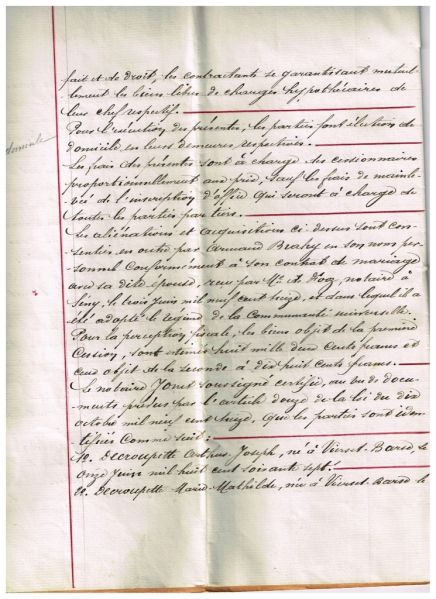 fait et de droit, les contractants se garantissant mutuel-
-lement les biens libres de charges hypothécaires de
leur chef respectif.
Pour l'exécution des présentes, les parties font élection de
domicile en leurs demeures respectives.
Les frais des présentes sont à charge des cessionnaires
proportionnellement aux prix, sauf les frais de mainle-
-vée de l'inscription d'office qui seront à charge de
toutes les parties par tiers.
Les aliénations et acquisitions ci dessus sont con-
-senties en outre par Armand Brasky en son nom per-
-sonnel conformément à son contrat de mariage
avec sa dite épouse, reçu par Me A. notaire à
Seny, le trois juin mil neuf cent seize, et dans lequel il a
été adopté le régime de la communauté universelle.
Pour la perception fiscale, les biens objet de la première
cession, sont estimés huit mille deux cents francs et
ceux objet de la seconde à dix huit cents francs.
Le notaire Jonet soussigné certifie, au vu de docu-
-ments prévus par l'article douze de la loi du dix
octobre mil neuf cent treize, que les parties sont iden-
-tifiées comme suit:
1e. Decroupette Joseph, né à Vierset-Barse, le
onze juin mil huit cent soixante sept.
2e. Decroupette Marie-Mathilde, née à Vierset-Barse le